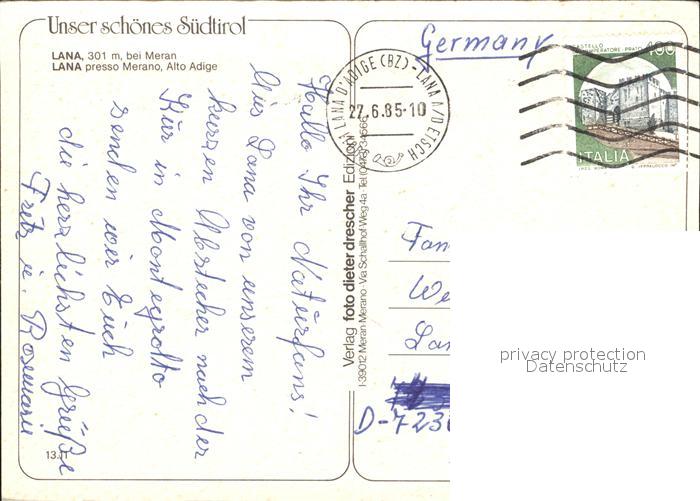 Unser schönes Südtirol
LANA, 301 m, bei Meran
LANA presso Merano, Alto Adige
Hallo Ihr Naturfans!
Aus Lana von unserem
kurzen Abstecher nach der
Kur in Montegrotto
senden wir Euch
die herzlichsten Grüße
Fritz u. Rosemarie
13.11
Verlag foto dieter drescher Edizioni
I-39012 Meran Merano - Via Schallhof Weg 4a
LANA D'ADIGE (BZ) - LANA A/D ETSCH
27.6.85-10
Germany
CASTELLO IMPERATORE - PRATO 400
ITALIA
Fam
We
La
D-723
privacy protection
Datenschutz